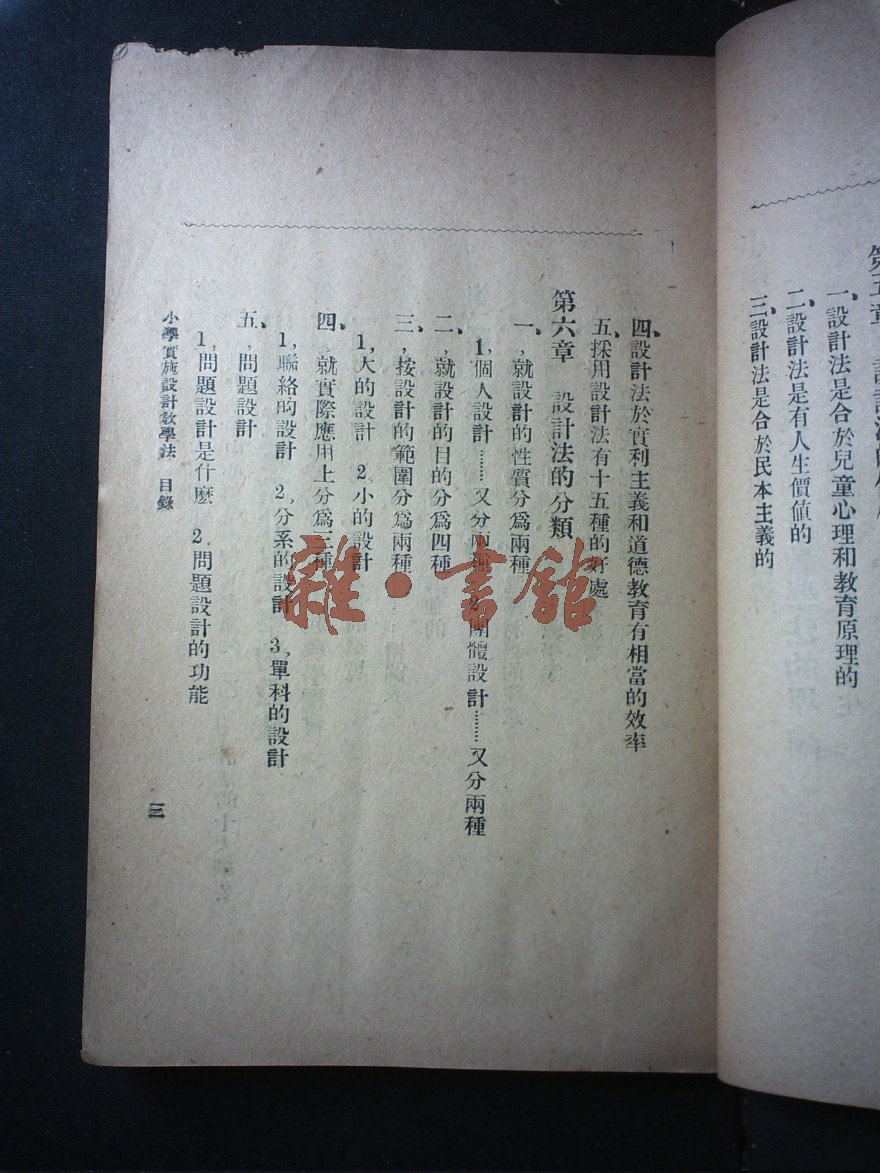 一、設計法是合於兒童心理和教育原理的
二、設計法是有人生價値的
三、設計法是合於民本主義的
四、設計法於實利主義和道德教育有相當的效率
五、採用設計法有十五種的好處
第六章 設計法的分類
一、就設計的性質分爲兩種
1,個人設計……又分兩種 2,團體設計……又分兩種
二、就設計的目的分爲四種
三、按設計的範圍分爲兩種
1,大的設計 2,小的設計
四、就實際應用上分爲三種
1,聯絡的設計 2,分系的設計 3,單科的設計
五、問題設計
1,問題設計是什麼 2,問題設計的功能
小學實施設計教學法 目錄
三
雜·書館